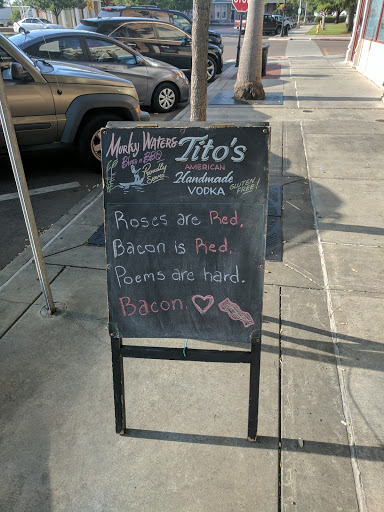 Murky Waters
Blues n BBQ
Proudly
Serves
Tito's
AMERICAN
Handmade
VODKA
GLUTEN
FREE!
Roses are Red,
Bacon is Red,
Poems are hard.
Bacon.
STOP